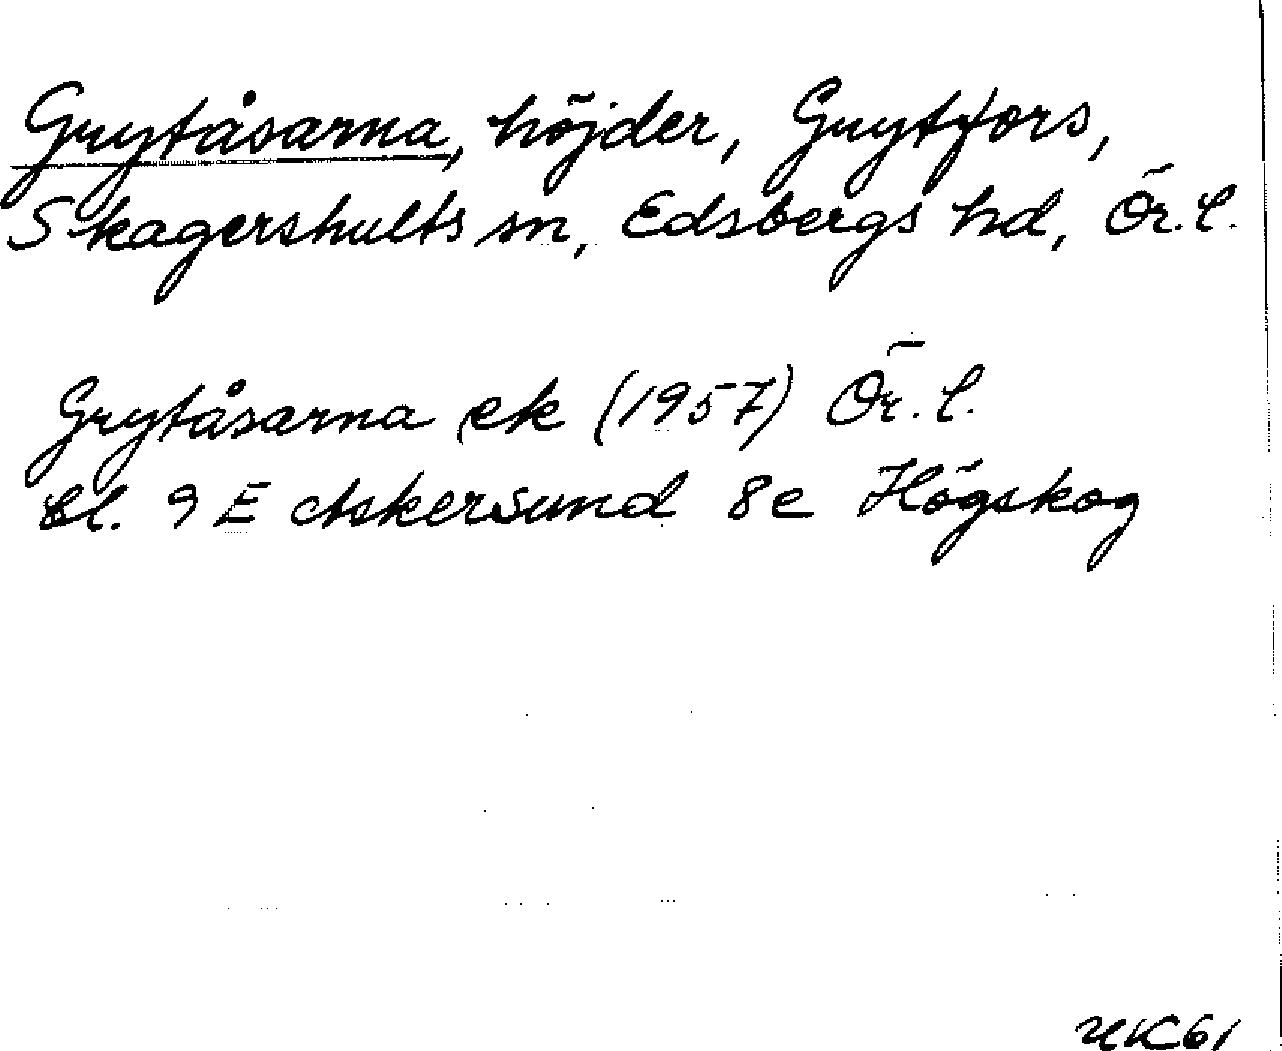 Grytåsarna, höjder, Grytfors,
Skagershults sn, Edsbergs hd, Ör. l.
Grytåsarna ek (1957) Ör. l.
bl. 9 E Askersund 8e Högskog